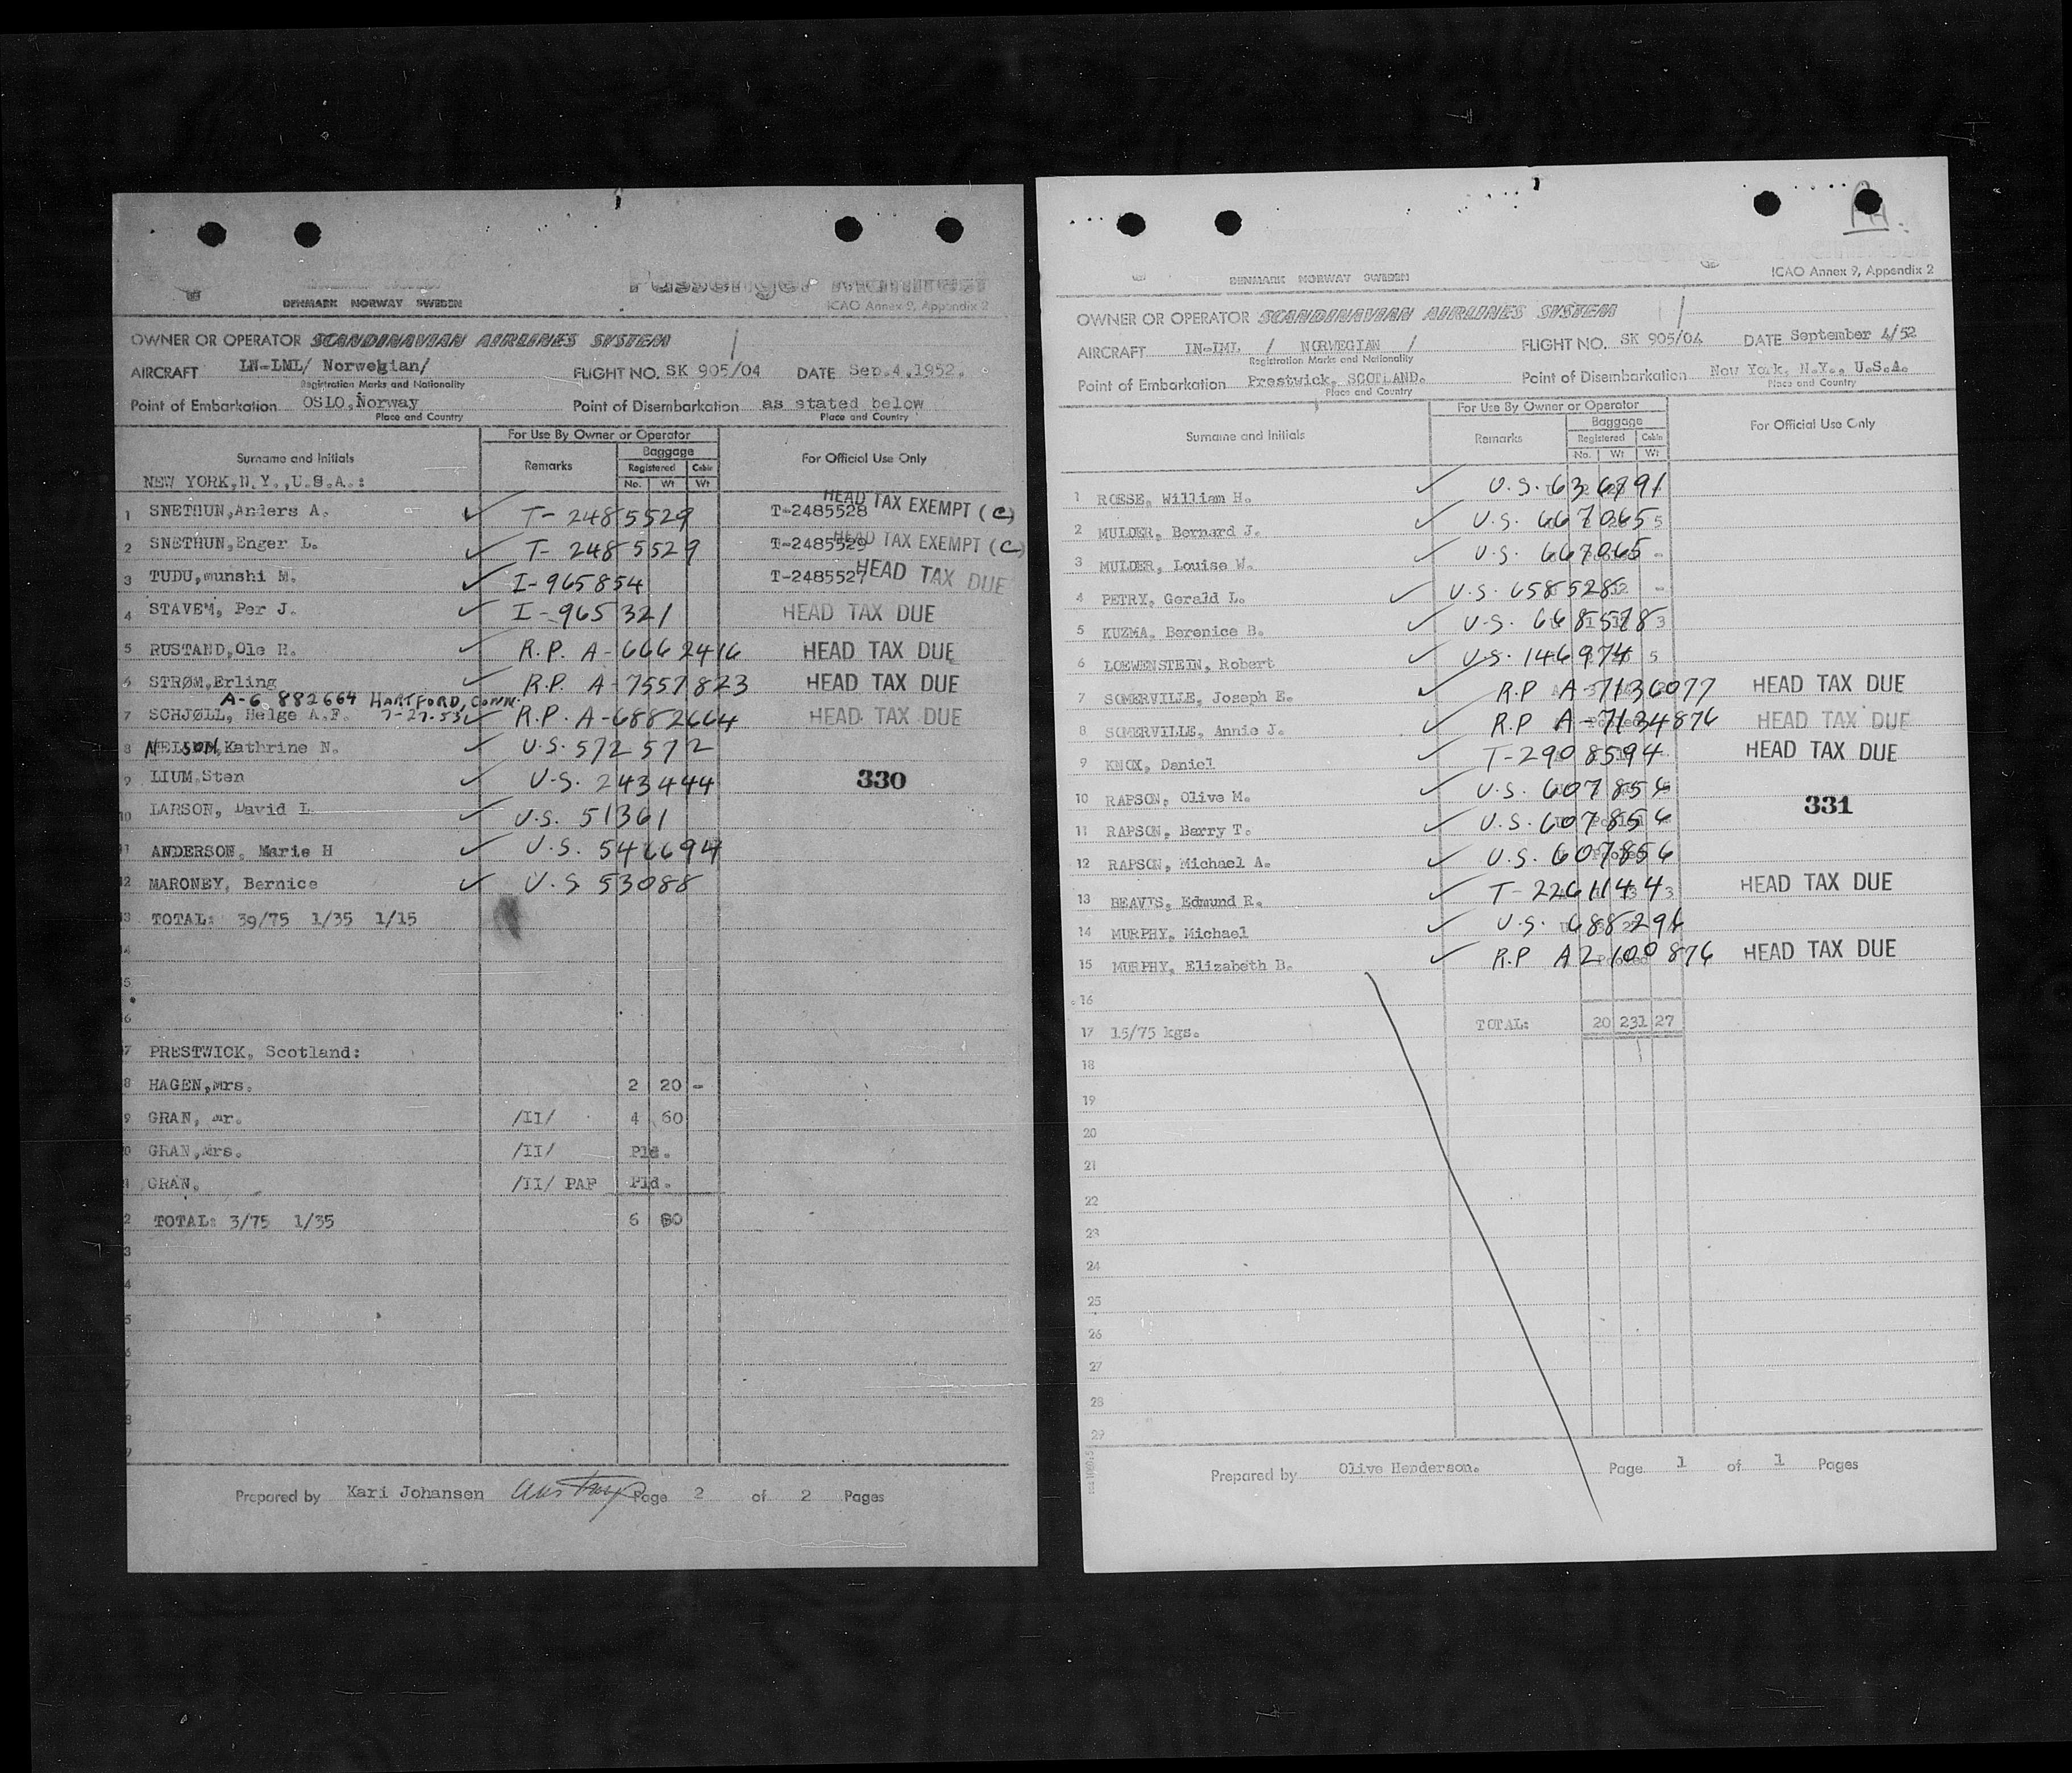 Passenger Manifest
DENMARK NORWAY SWEDEN
ICAO Annex 9, Appendix 2
OWNER OR OPERATOR SCANDINAVIAN AIRLINES SYSTEM
AIRCRAFT LN-LML/ Norwegian/ FLIGHT NO. SK 905/04 DATE Sep.4.1952.
Registration Marks and Nationality
Point of Embarkation OSLO,Norway Point of Disembarkation as stated below
Place and Country Place and Country
For Use By Owner or Operator
Baggage
Surname and Initials Remarks Registered Cabin For Official Use Only
No. Wt Wt
NEW YORK,N.Y.,U.S.A.:
1 SNETHUN,Anders A. ✓ T-2485529 T-2485528 HEAD TAX EXEMPT (C)
2 SNETHUN,Enger L. ✓ T-2485529 T-2485529 HEAD TAX EXEMPT (C)
3 TUDU,munshi M. ✓ I-965854 T-2485527 HEAD TAX DUE
4 STAVEM, Per J. ✓ I-965321 HEAD TAX DUE
5 RUSTAND,Ole H. ✓ R.P. A-6662416 HEAD TAX DUE
6 STRØM,Erling R.P. A-7557823 HEAD TAX DUE
A-6 882664 HARTFORD, CONN.
7 SCHJØLL, Helge A.F. 7-27-53 ✓ R.P. A-6882664 HEAD TAX DUE
8 NELSON,Kathrine N. ✓ U.S. 572572
9 LIUM,Sten ✓ U.S. 243444 330
10 LARSON, David L ✓ U.S. 51361
11 ANDERSON, Marie H ✓ U.S. 546694
12 MARONEY, Bernice ✓ U.S 53088
13 TOTAL: 39/75 1/35 1/15
14
15
16
17 PRESTWICK, Scotland:
18 HAGEN,Mrs. 2 20 -
19 GRAN, Mr. /II/ 4 60
20 GRAN,Mrs. /II/ Pld.
21 GRAN. /II/ PAP Pld.
22 TOTAL: 3/75 1/35 6 80
3
4
5
6
7
8
9
Prepared by Kari Johansen Page 2 of 2 Pages
DENMARK NORWAY SWEDEN
ICAO Annex 9, Appendix 2
OWNER OR OPERATOR SCANDINAVIAN AIRLINES SYSTEM
AIRCRAFT LN-LML / NORWEGIAN / FLIGHT NO. SK 905/04 DATE September 4/52
Registration Marks and Nationality
Point of Embarkation Prestwick, SCOTLAND. Point of Disembarkation New York, N.Y., U.S.A.
Place and Country Place and Country
For Use By Owner or Operator
Baggage
Surname and Initials Remarks Registered Cabin For Official Use Only
No. Wt Wt
1 ROESE, William H. ✓ U.S. 636791
2 MULDER, Bernard J. ✓ U.S. 667065 5
3 MULDER, Louise W. ✓ U.S. 667065 -
4 PETRY, Gerald L. ✓ U.S. 658528 -
5 KUZMA, Berenice B. ✓ U.S. 668578 3
6 LOEWENSTEIN, Robert ✓ U.S. 146974 5
7 SOMERVILLE, Joseph E. ✓ R.P A-7136077 HEAD TAX DUE
8 SOMERVILLE, Annie J. ✓ R.P A-7134876 HEAD TAX DUE
9 KNOX, Daniel ✓ T-2908594 HEAD TAX DUE
10 RAPSON, Olive M. ✓ U.S. 607856
331
11 RAPSON, Barry T. ✓ U.S. 607856
12 RAPSON, Michael A. ✓ U.S. 607856
13 BEAVIS, Edmund R. ✓ T-2261144 3 HEAD TAX DUE
14 MURPHY, Michael ✓ U.S. 688296
15 MURPHY, Elizabeth B. ✓ R.P A2100876 HEAD TAX DUE
16
17 15/75 kgs. TOTAL: 20 231 27
18
19
20
21
22
23
24
25
26
27
28
29
Prepared by Olive Henderson. Page 1 of 1 Pages